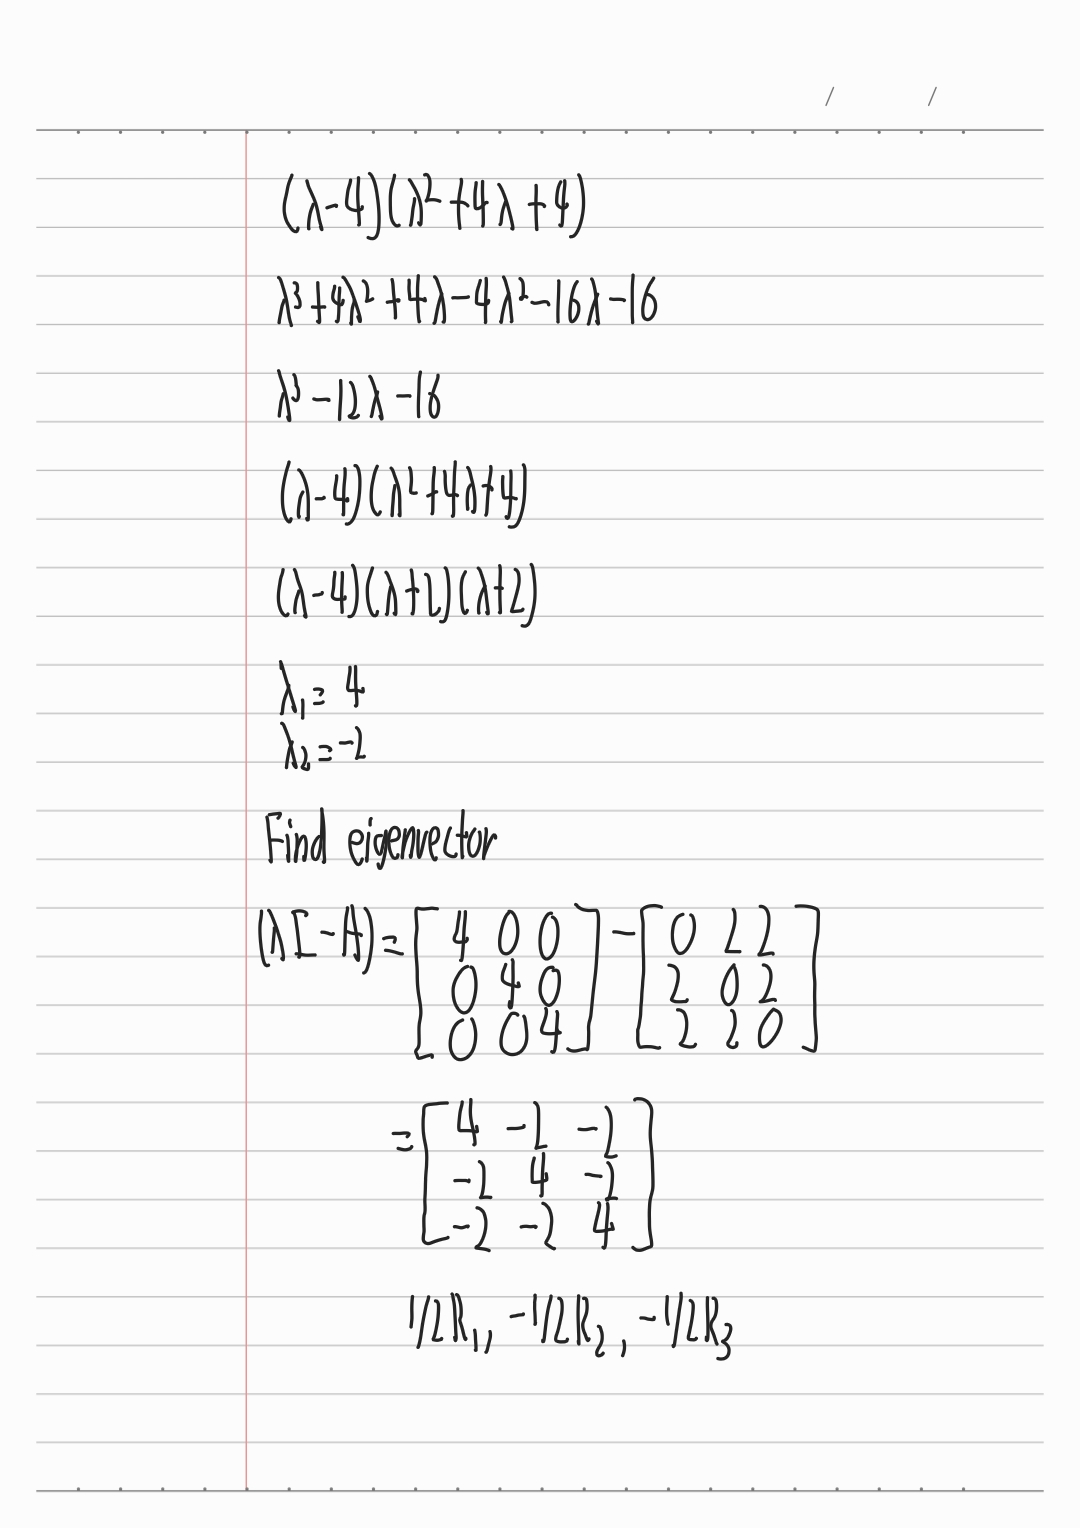 (λ-4)(λ²+4λ+4)
λ³+4λ²+4λ-4λ²-16λ-16
λ³-12λ-16
(λ-4)(λ²+4λ+4)
(λ-4)(λ+2)(λ+2)
λ₁=4
λ₂=-2
Find eigenvector
(λI-A)=[4 0 0]-[0 2 2]
[0 4 0] [2 0 2]
[0 0 4] [2 2 0]
=[4 -2 -2]
[-2 4 -2]
[-2 -2 4]
1/2R₁, -1/2R₂, -1/2R₃